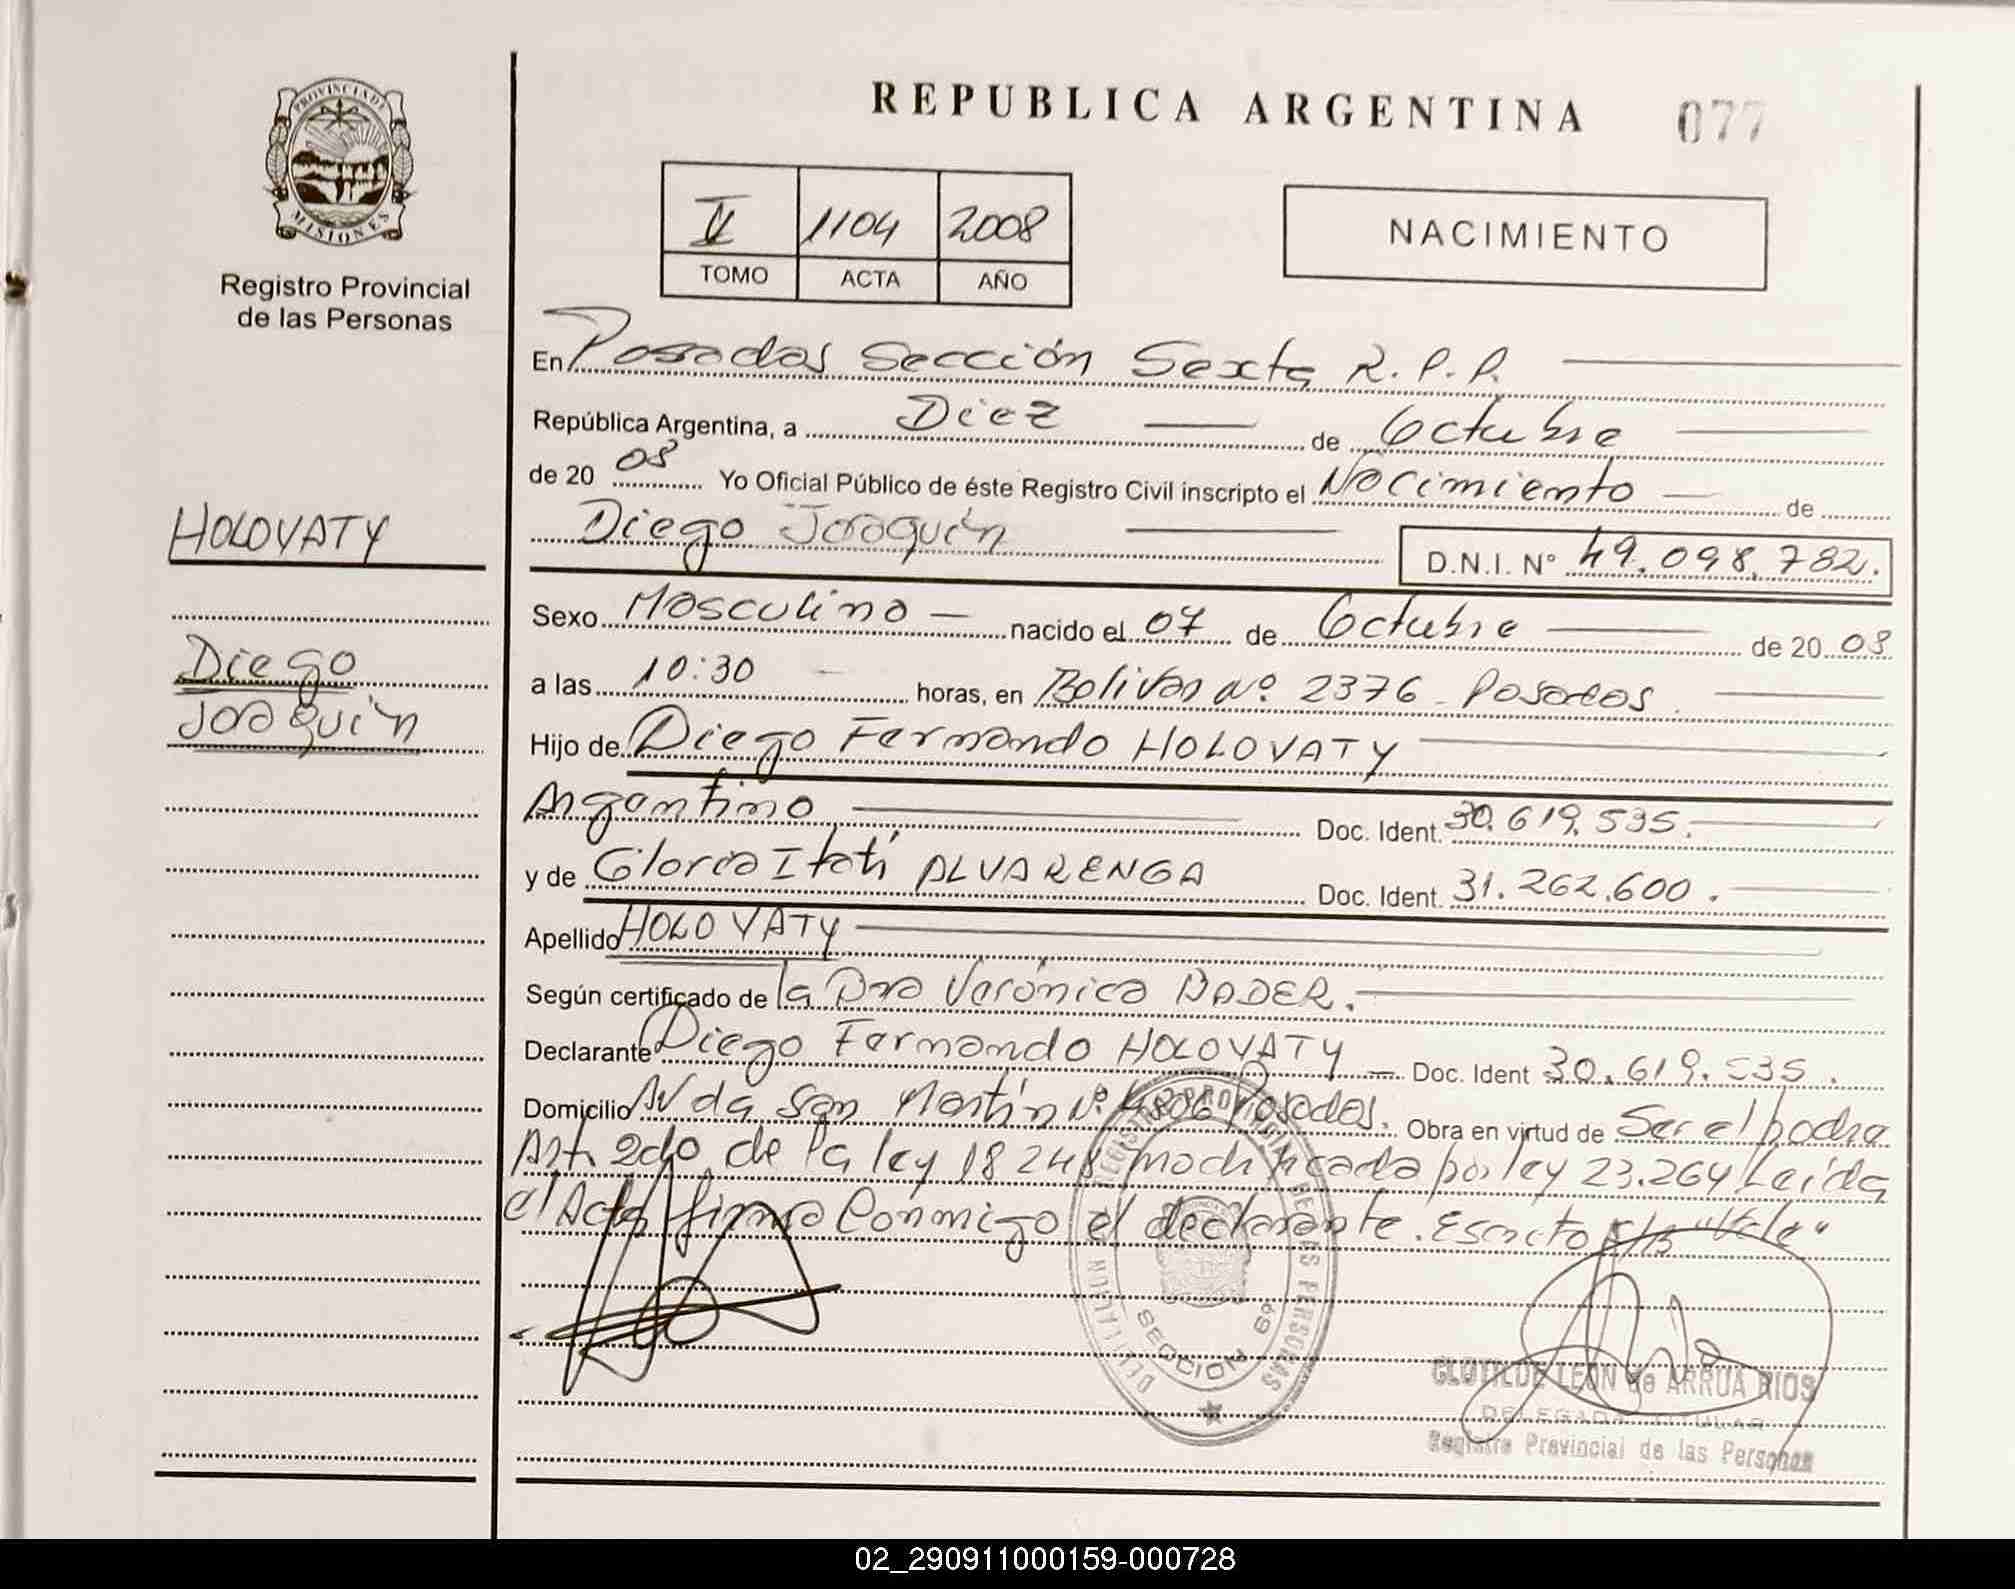 REPUBLICA ARGENTINA 077
PROVINCIA DE
MISIONES
Registro Provincial
de las Personas
1104 2008
TOMO ACTA AÑO
NACIMIENTO
En Posadas Sección Sexta R.P.P.
República Argentina, a Diez de Octubre
de 20 08 Yo Oficial Público de éste Registro Civil inscripto el Nacimiento de
Diego Joaquín D.N.I. N° 49.098.782.
HOLOVATY
Sexo Masculino nacido el 07 de Octubre de 20 08
Diego
Joaquín
a las 10:30 horas, en Bolivar Nº 2376 - Posadas
Hijo de Diego Fernando HOLOVATY
Argentino Doc. Ident. 30.619.535.
y de Gloria Itatí ALVARENGA Doc. Ident. 31.262.600.
Apellido HOLOVATY
Según certificado de la Dra Verónica BADER.
Declarante Diego Fernando HOLOVATY Doc. Ident 30.619.535.
Domicilio Avda San Martín Nº 4806 Posadas. Obra en virtud de Ser el padre
Art. 2do de la ley 18248 modificada por ley 23.264 Leída
el Acta firma conmigo el declarante. Escrito "Vale"
REGISTRO PROVINCIAL DE LAS PERSONAS
SECCION 6ª
CLOTILDE LEON de ARRUA RIOS
DELEGADA TITULAR
Registro Provincial de las Personas
02_290911000159-000728